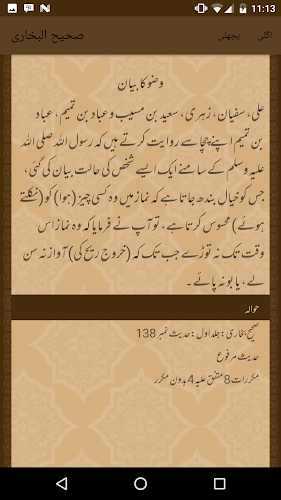 11:13
صحیح البخاری
پچھلی
اگلی
وضو کا بیان
علی، سفیان، زہری، سعید بن مسیب وعباد بن تمیم، عباد
بن تمیم اپنے چچا سے روایت کرتے ہیں کہ رسول اللہ صلی اللہ
علیہ وسلم کے سامنے ایک ایسے شخص کی حالت بیان کی گئی،
جس کو خیال بندھ جاتا ہے کہ نماز میں وہ کسی چیز (ہوا) کو (نکلتے
ہوئے) محسوس کرتا ہے، تو آپ نے فرمایا کہ وہ نماز اس
وقت تک نہ توڑے جب تک کہ (خروج ریح کی) آواز نہ سن
لے، یا بو نہ پائے۔
حوالہ
صحیح بخاری: جلد اول: حدیث نمبر 138
حدیث مرفوع
مکررات 8 متفق علیہ 4 بدون مکرر